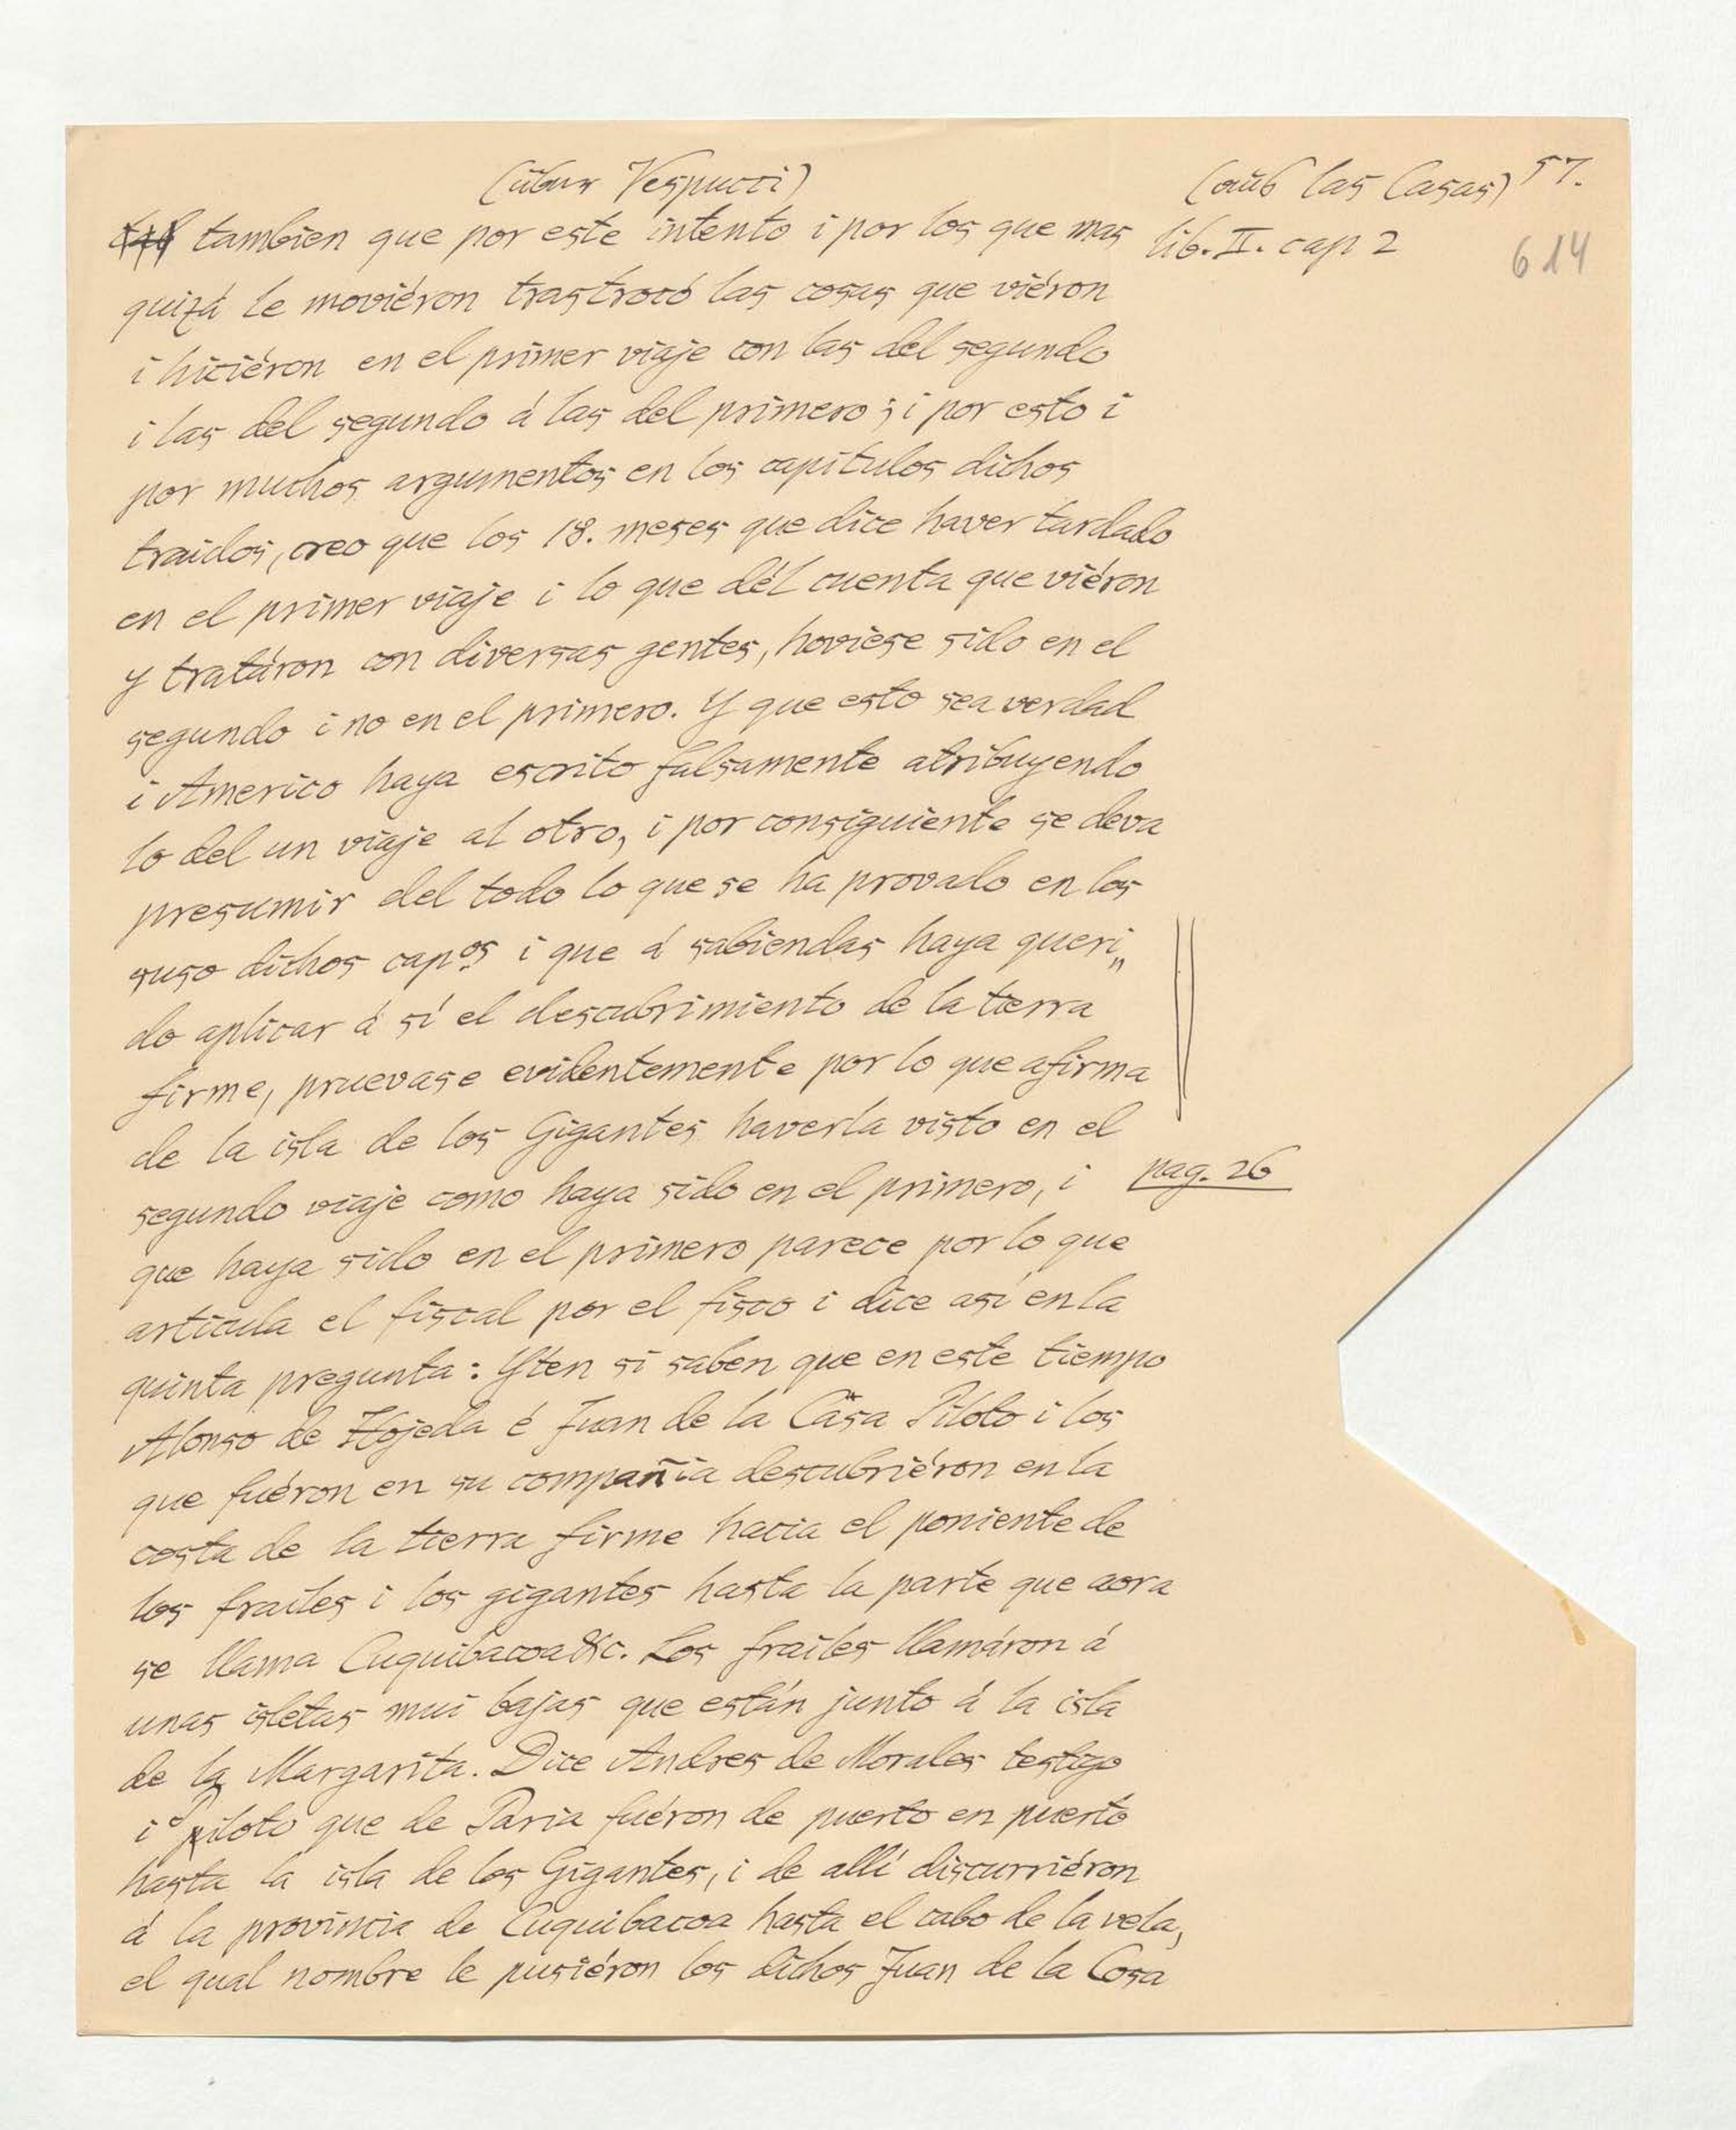 (über Vespucci)
(aus las Casas) 57.
614
tambien que por este intento i por los que mas
lib. II. cap 2
quizá le moviéron trastrocó las cosas que viéron
i hiciéron en el primer viaje con las del segundo
i las del segundo á las del primero; i por esto i
por muchos argumentos en los capitulos dichos
traidos, creo que los 18. meses que dice haver tardado
en el primer viaje i lo que dél cuenta que viéron
y tratáron con diversas gentes, hoviese sido en el
segundo i no en el primero. Y que esto sea verdad
i Americo haya escrito falsamente atribuyendo
lo del un viaje al otro, i por consiguiente se deva
presumir del todo lo que se ha provado en los
suso dichos capos i que á sabiendas haya queri„
do aplicar á sí el descubrimiento de la tierra
firme, pruevase evidentemente por lo que afirma
de la isla de los Gigantes haverla visto en el
segundo viaje como haya sido en el primero, i
pag. 26
que haya sido en el primero parece por lo que
articula el fiscal por el fisco i dice asi en la
quinta pregunta: Yten si saben que en este tiempo
Alonso de Hojeda é Juan de la Cosa Piloto i los
que fuéron en su compañia descubriéron en la
costa de la tierra firme hacia el poniente de
los frailes i los gigantes hasta la parte que aora
se llama Cuquibacoa &c. Los frailes llamáron á
unas isletas mui bajas que están junto á la isla
de la Margarita. Dice Andres de Morales testigo
i piloto que de Paria fuéron de puerto en puerto
hasta la isla de los Gigantes, i de allí discurriéron
á la provincia de Cuquibacoa hasta el cabo de la vela,
el qual nombre le pusiéron los dichos Juan de la Cosa